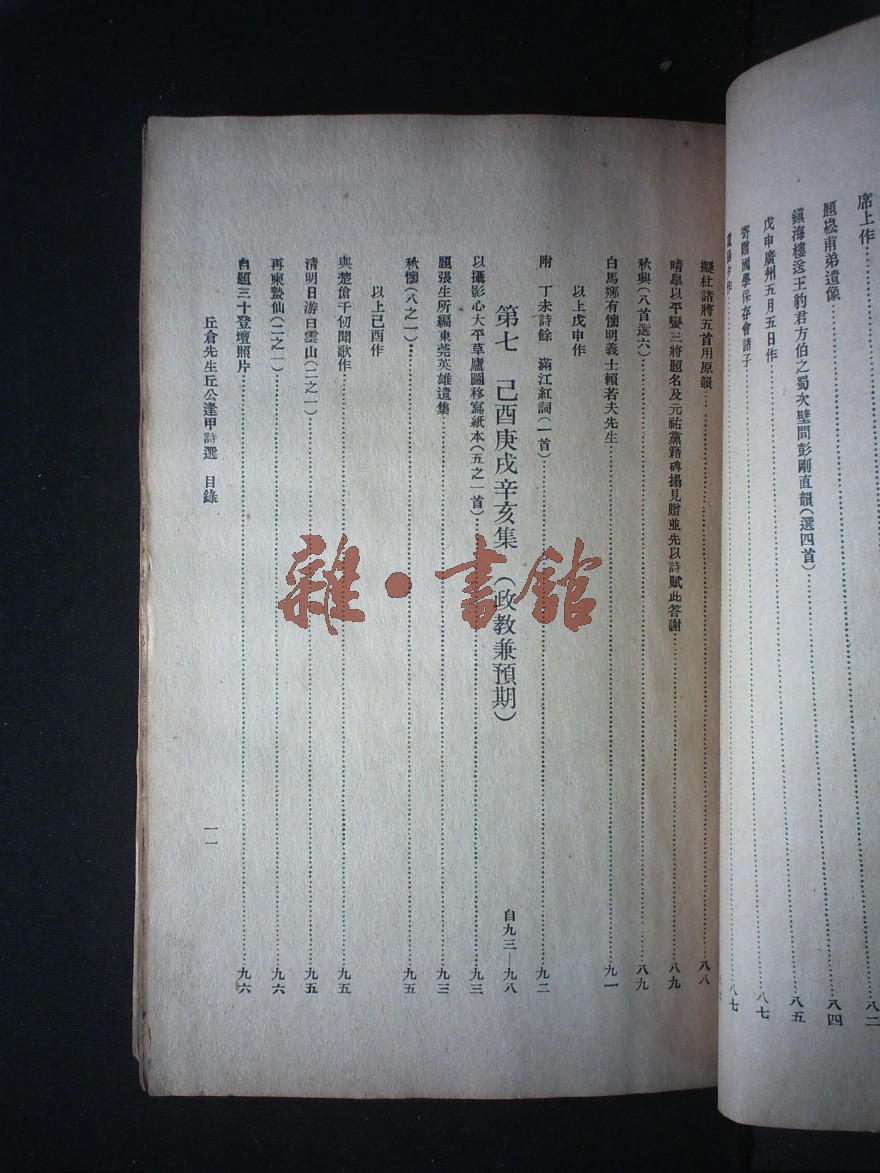 席上作……八二
題崧甫弟遺像……八四
鎮海樓送王豹君方伯之蜀次壁間彭剛直韻(選四首)……八五
戊申廣州五月五日作……八七
寄贈國學保存會諸子……八七
夕作
擬杜諸將五首用原韻……八八
晴皐以平蠻三將題名及元祐黨籍碑搨見贈並先以詩賦此答謝……八九
秋興(八首選六)……八九
白馬鄉有懷明義士賴若夫先生……九一
以上戊申作
附 丁未詩餘 滿江紅詞(一首)……九二
第七 己酉庚戌辛亥集 (政教兼預期) 自九三—九八
以攝影心大平草廬圖移寫紙本(五之一首)……九三
題張生所編東莞英雄遺集……九三
秋懷(八之一)……九五
以上己酉作
與楚傖千仞聞歌作……九五
清明日游白雲山(二之一)……九五
再柬蟄仙(二之一)……九六
自題三十登壇照片……九六
丘倉先生丘公逢甲詩選 目錄
一一
雜·書館